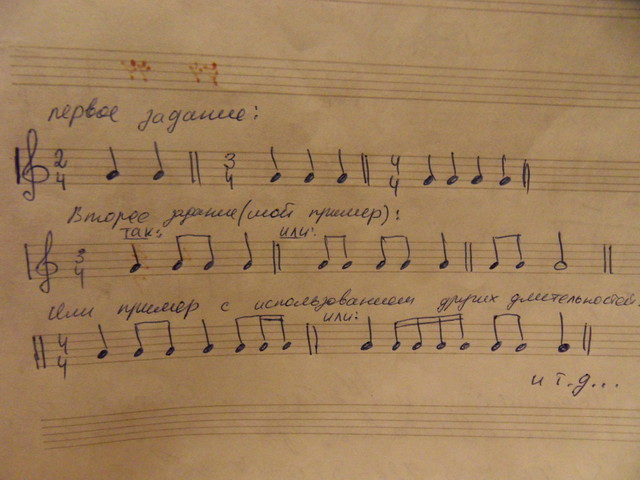 первое задание:
2 4 3 4 4 4
Второе задание (мой пример):
так: или:
3 4
Или пример с использованием других длительностей.
или:
4 4
и т.д...